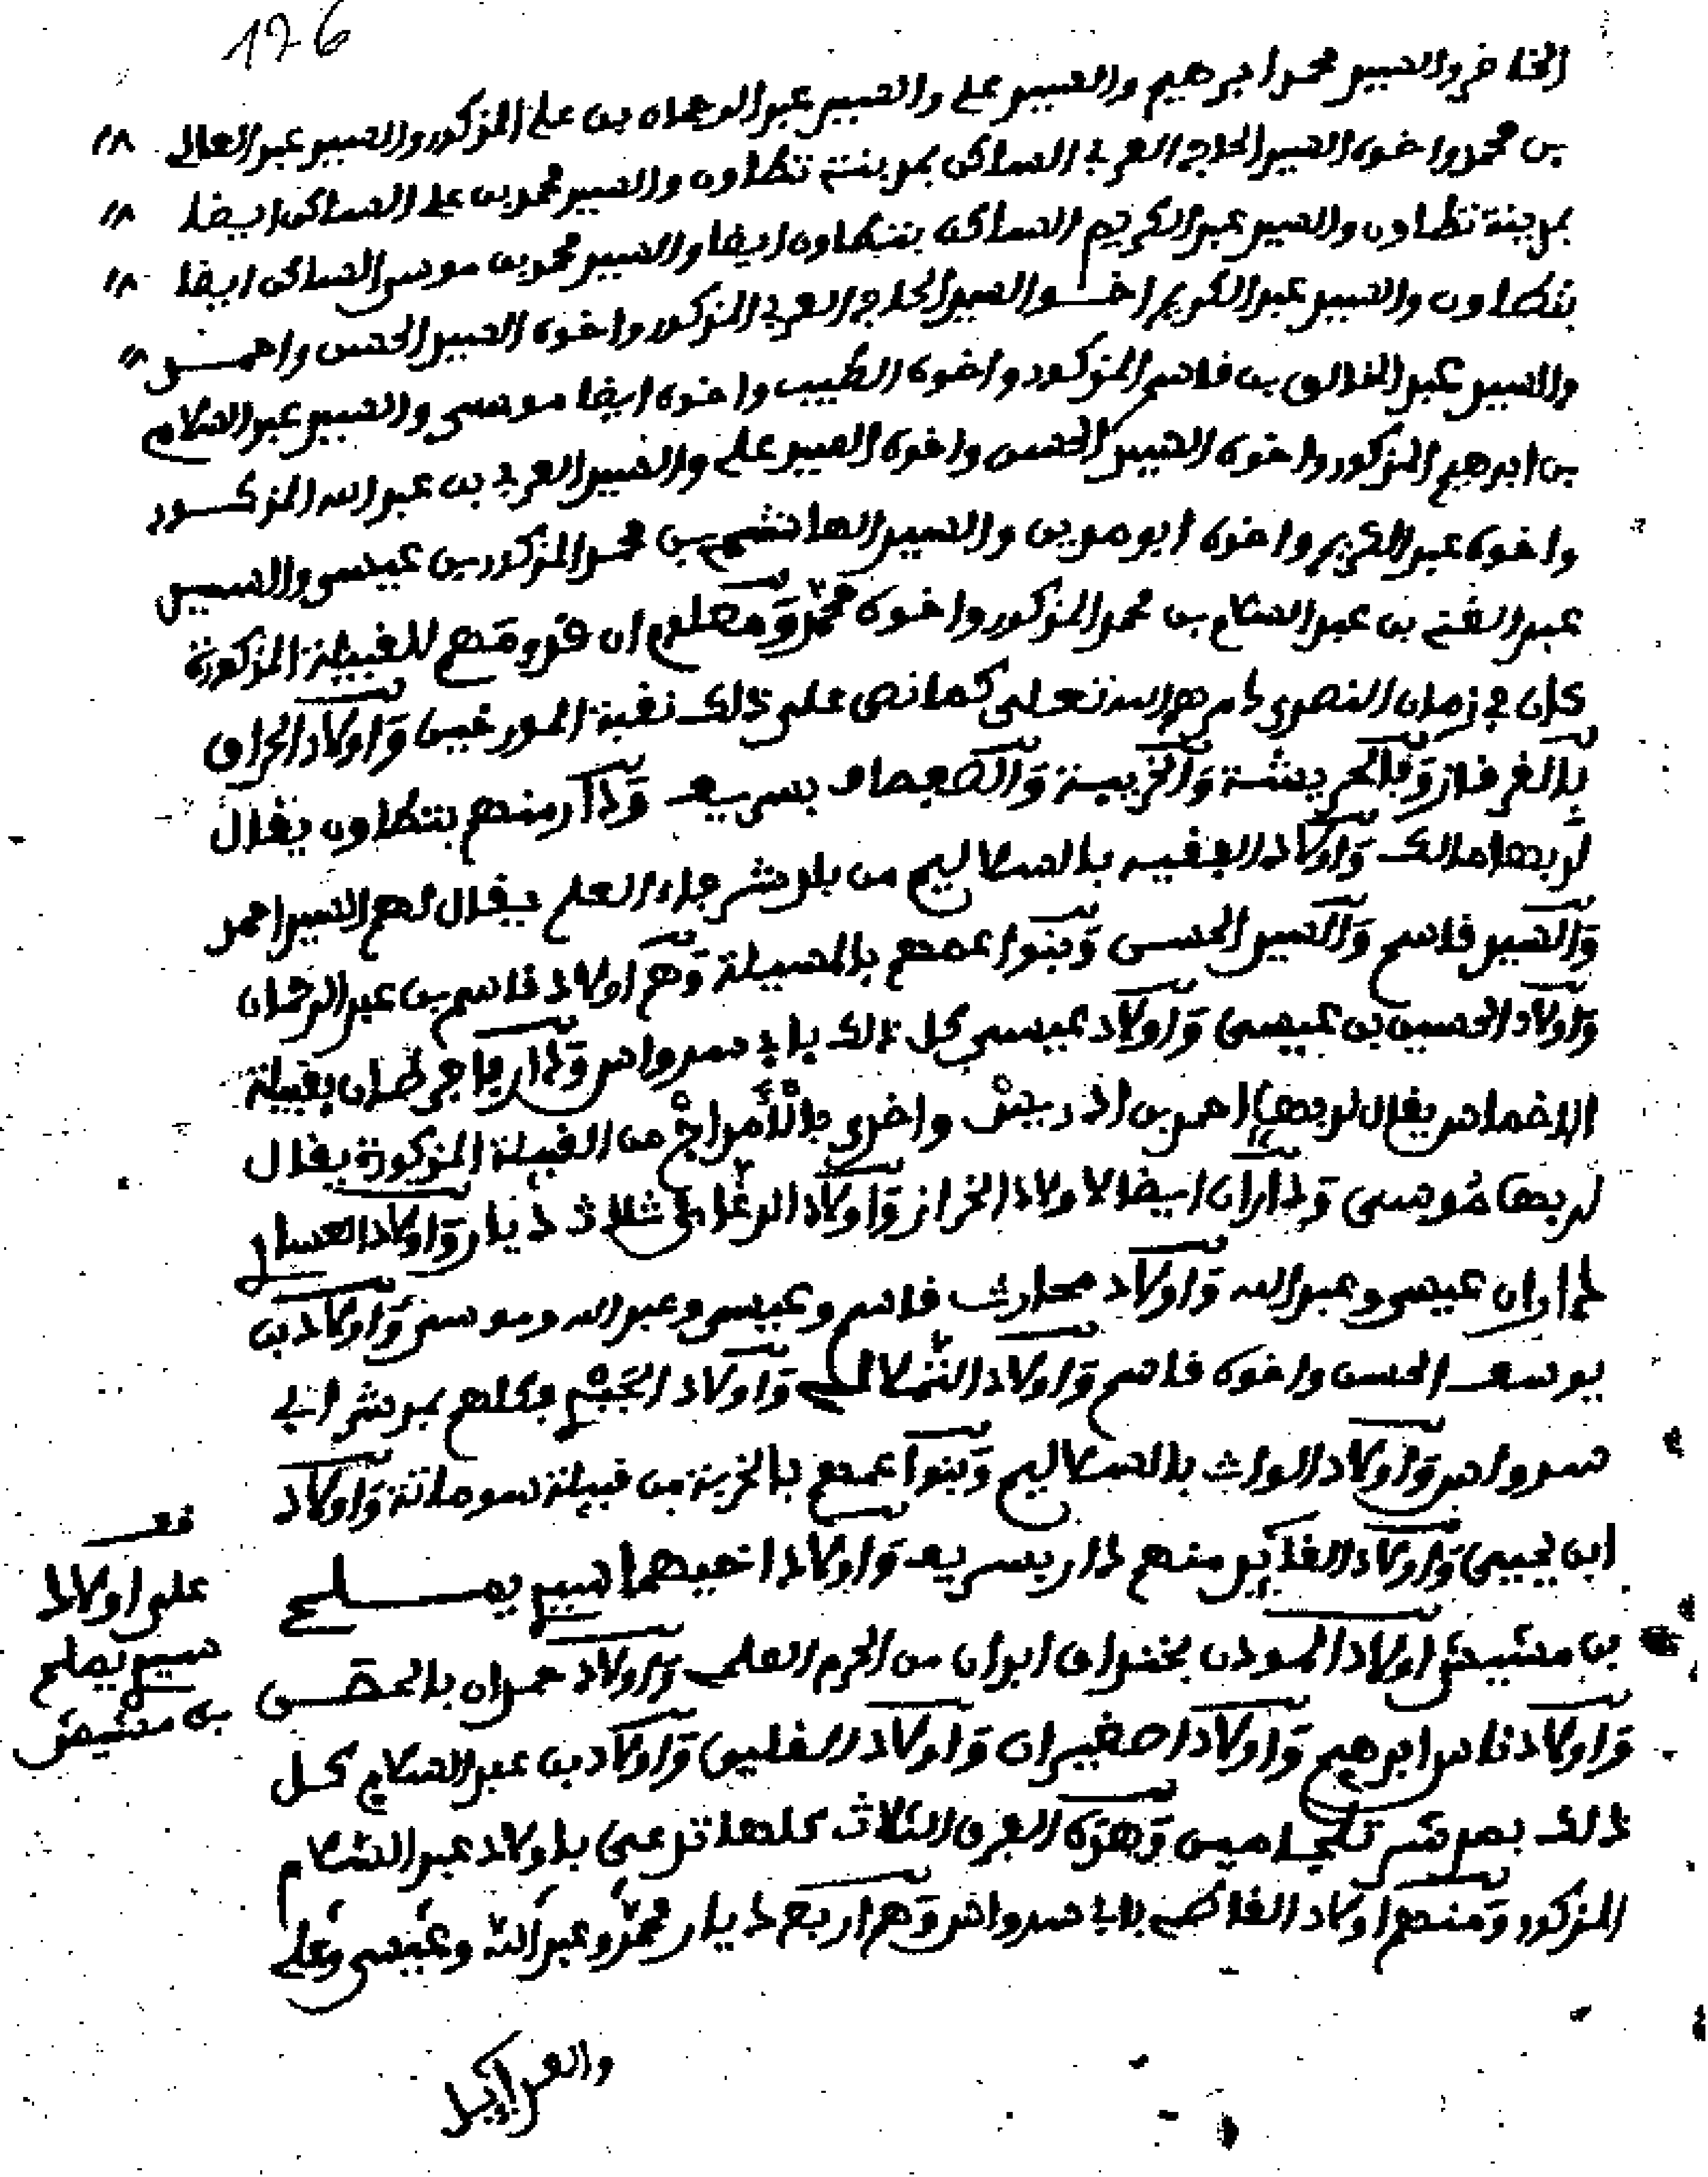 126
الخاضر والسيد محمد ابرهيم والسيد علي والسيد عبد الرحمان بن علي المذكور والسيد عبد العالي
بن محمد واخوه السيد الحاج العربي الساكن بمدينة تطاون والسيد محمد بن علي الساكن ايضا
بمدينة تطاون والسيد عبد الكريم الساكن بتطاون ايضا والسيد محمد بن موسى الساكن ايضا
بتطاون والسيد عبد الكريم اخو السيد الحاج العربي المذكور واخوه السيد الحسن واحمد
والسيد عبد الخالق بن قاسم المذكور واخوه الطيب واخوه ايضا موسى والسيد عبد السلام
بن ابرهيم المذكور واخوه السيد الحسن واخوه السيد علي والسيد العربي بن عبد الله المذكور
واخوه عبد الكريم واخوه ابو مدين والسيد الهاشمي بن محمد المذكور بن عيسى والسيد
عبد الغني بن عبد السلام بن محمد المذكور واخوه محمد ومعلوم ان قدومهم للقبيلة المذكورة
كان في زمان النصرى دمرهم الله تعلى كما نص على ذلك نقبة المورخين وَاولاد الحراق
بالغرفاز وَبالحريشة وَالخربية وَالصعصاف بسريف وَدار منهم بتطاون يقال
لربها مالك وَاولاد الفقيه بالسلاليم من بلد شرفاء العلم يقال لهم السيد احمد
وَالسيد قاسم وَالسيد الحسن وَبنوا عمهم بالمسيلة وَهم اولاد قاسم بن عبد الرحمان
وَاولاد الحسين بن عيسى وَاولاد عيسى كل ذلك بابي سدواس وَدار بواجرطان بقبيلة
الاخماس يقال لربها احمد بن ادريس واخرى بالْأَمراجْ من القبيلة المذكورة يقال
لربها مُوسى وَداران ايضا لاولاد الخراز وَاولاد الرغاي ثلاث ديار وَاولاد العسال
داران عيسى وعبد الله وَاولاد محارش قاسم وعيسى وعبد الله وموسى وَاولاد بن
يوسف الحسن واخوه قاسم وَاولاد الشلالي وَاولاد الجَيم فكلهم بمدشر ابي
سدواس وَاولاد الوارث بالسلاليم وَبنوا عمهم بالخربة من قبيلة سوماتة وَاولاد
ابن يحيى وَاولاد القايد منهم دار بسريف وَاولاد اخيهما سيدي يملح
بن مشيش اولاد المودن بخندق ابران من الحرم العلمي وَاولاد حمدان بالحصن
وَاولاد ناس ابرهيم وَاولاد اصغيران وَاولاد الفليس وَاولاد بن عبد السلام كل
ذلك بمدشر تلجامين وَهذه الفرق الثلاث كلها تدعى باولاد عبد السلام
المذكور وَمنهم اولاد القاضي بابي سدواس وَهم اربع ديار محمد وعبد الله وعيسى وعلي
قف
على اولاد
سيدي يملح
بن مشيش
والعرايل